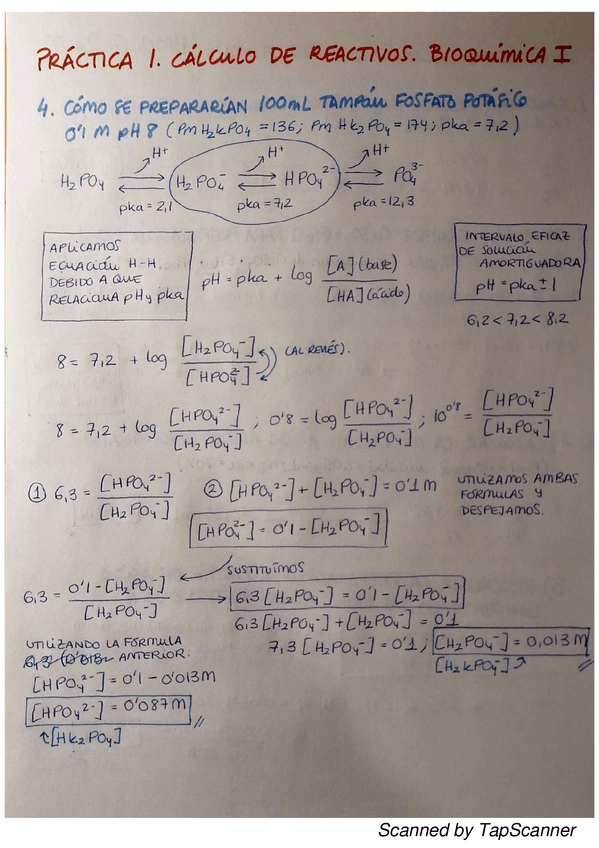 PRÁCTICA 1. CÁLCULO DE REACTIVOS. BIOQUÍMICA I
4. CÓMO SE PREPARARÍAN 100mL TAMPÓN FOSFATO POTÁSICO
0'1 M pH 8 (Pm H2KPO4 = 136; Pm HK2PO4 = 174; pka = 7,2)
H⁺ H⁺ H⁺
H2PO4 ⇌ H2PO4⁻ ⇌ HPO4²⁻ ⇌ PO4³⁻
pka = 2,1 pka = 7,2 pka = 12,3
APLICAMOS
ECUACIÓN H-H
DEBIDO A QUE
RELACIONA pH y pka
pH = pka + log [A](base) / [HA](ácido)
INTERVALO EFICAZ
DE SOLUCIÓN
AMORTIGUADORA
pH = pka ± 1
6,2 < 7,2 < 8,2
8 = 7,2 + log [H2PO4⁻] / [HPO4²⁻] (AL REVÉS).
8 = 7,2 + log [HPO4²⁻] / [H2PO4⁻] ; 0'8 = log [HPO4²⁻] / [H2PO4⁻] ; 10^0'8 = [HPO4²⁻] / [H2PO4⁻]
① 6,3 = [HPO4²⁻] / [H2PO4⁻]
② [HPO4²⁻] + [H2PO4⁻] = 0'1 M
[HPO4²⁻] = 0'1 - [H2PO4⁻]
UTILIZAMOS AMBAS
FÓRMULAS Y
DESPEJAMOS.
SUSTITUÍMOS
6,3 = 0'1 - [H2PO4⁻] / [H2PO4⁻] → 6,3 [H2PO4⁻] = 0'1 - [H2PO4⁻]
6,3 [H2PO4⁻] + [H2PO4⁻] = 0'1
7,3 [H2PO4⁻] = 0'1 ; [H2PO4⁻] = 0,013 M
[H2KPO4]
UTILIZANDO LA FÓRMULA
ANTERIOR:
[HPO4²⁻] = 0'1 - 0'013M
[HPO4²⁻] = 0'087 M
↑[HK2PO4]
Scanned by TapScanner